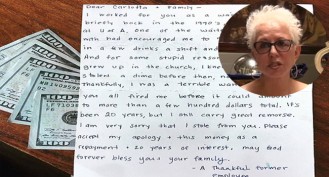 Dear Carlotta + Family -
I worked for you as a wa
briefly back in the 1990's
at U of A, one of the wait
with had encouraged me to
in a few drinks a shift and
And for some stupid reason
grew up in the church, I kne
stolen a dime before then, n
Thankfully, I was a terrible wa
you all fired me before it could amount
to more than a few hundred dollars total. It's
been 20 years, but I still carry great remorse.
I am very sorry that I stole from you. Please
accept my apology + this money as a
repayment + 20 years of interest. may God
forever bless you + your family.
- A Thankful Former
Employee